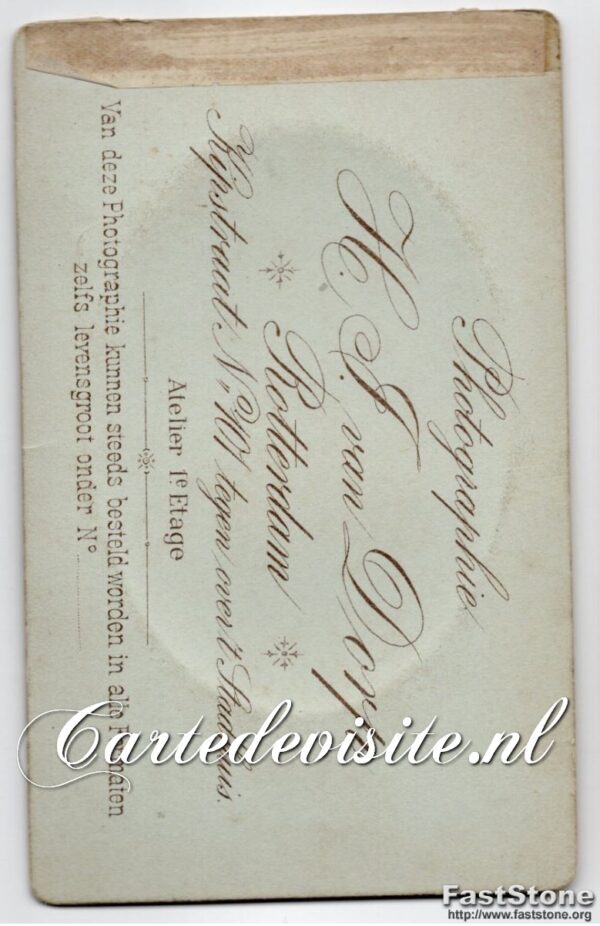 Photographie
H. J. van Dorp
Rotterdam
Kipstraat No. tegen over 't Stadhuis.
Atelier 1e Etage
Van deze Photographie kunnen steeds besteld worden in alle Formaten
zelfs levensgroot onder No
Cartedevisite.nl
FastStone
http://www.faststone.org